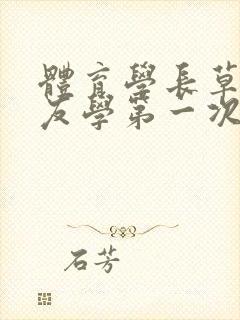 體育學長草
友學第一次
石芳